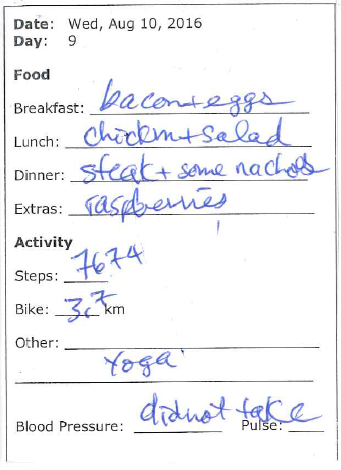 Date: Wed, Aug 10, 2016
Day: 9
Food
Breakfast: bacon+eggs
Lunch: chicken+salad
Dinner: steak+ some nachos
Extras: raspberries
Activity
Steps: 7674
Bike: 3.7 km
Other:
Yoga
Blood Pressure: did not take Pulse: